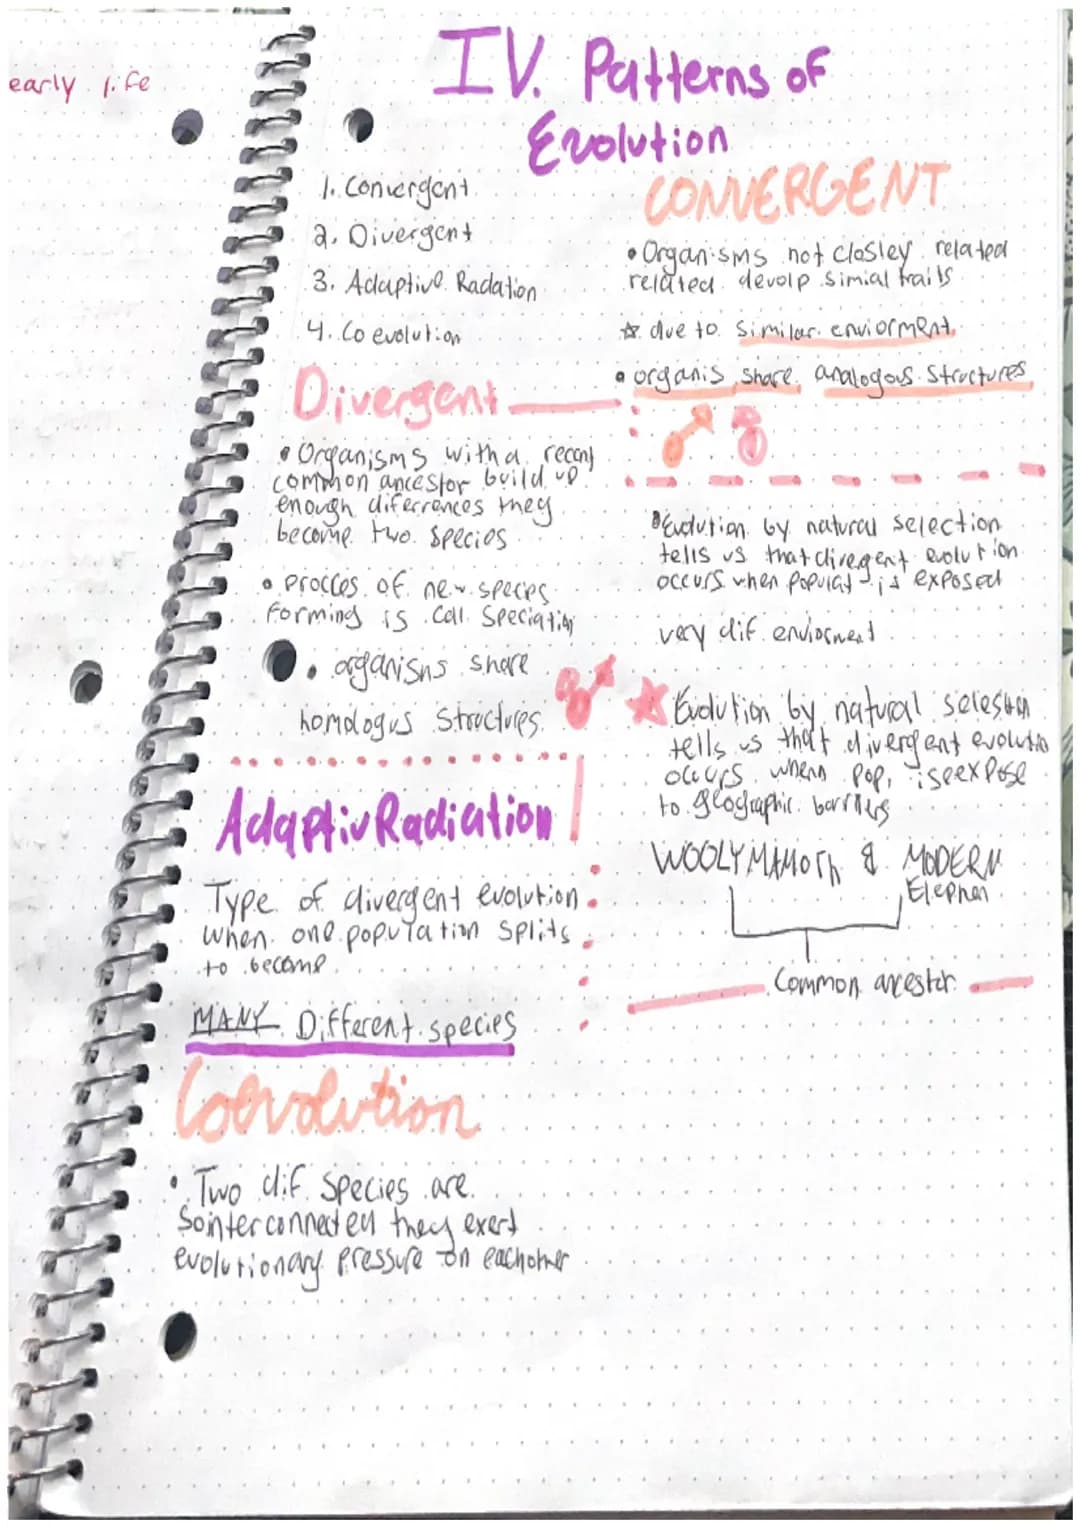 early life
IV. Patterns of
Evolution
1. Convergent
2. Divergent
3. Adaptive Radation
4. Coevolution
CONVERGENT
• Organisms not closley related
related devolp simial traits
☆ due to similar enviorment
• organis share analogous structures
Divergent
• Organisms with a recent
common ancestor build up
enough diferrences they
become two species
• procces of new species
forming is call speciation
• organisns share
homologus structures
• Evolution by natural selection
tells us that divergent evolution
occurs when populat is exposed
very dif enviorment
★ Evolution by natural selestion
tells us that divergent evolutio
occurs when pop, is expose
to geographic barriers
WOOLY MAMOTh & MODERN
Elephan
Common ancestor
Adaptiv Radiation
Type of divergent evolution
when one population splits
to become
MANY Different species
Coevolution
• Two dif species are
so interconnected they exert
evolutionary pressure on eachother